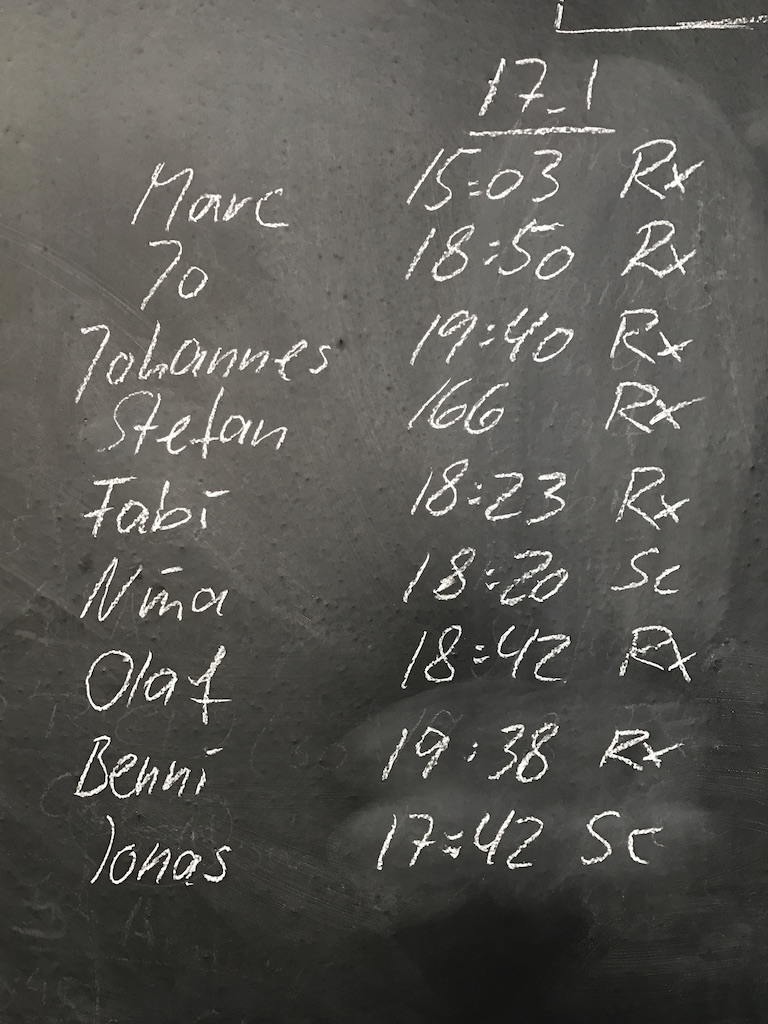 17.1
Marc 15:03 Rx
Jo 18:50 Rx
Johannes 19:40 Rx
Stefan 166 Rx
Fabi 18:23 Rx
Nina 18:20 Sc
Olaf 18:42 Rx
Benni 19:38 Rx
Jonas 17:42 Sc